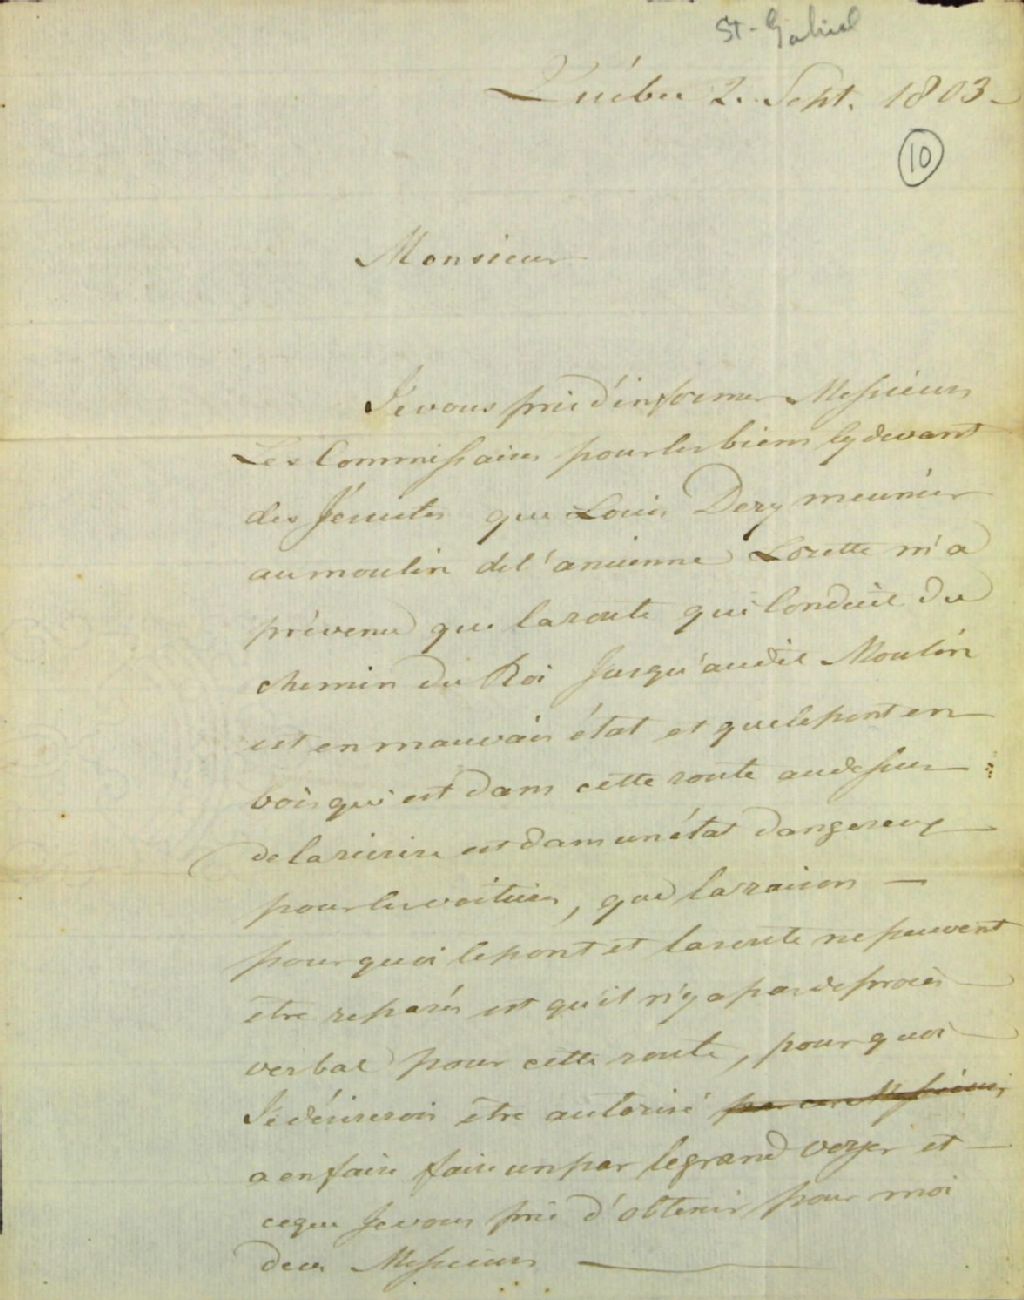 St-Gabriel
Québec 2. Sept. 1803
10
Monsieur
Je vous prie d'informer Messieurs
Les Commissaires pour les biens cy devant
des Jésuites que Louis Dery meunier
au moulin de l'ancienne Lorette m'a
prévenu que la route qui Conduit du
chemin du Roi Jusqu'audit Moulin
est en mauvais état et que le pont en
bois qui est dans cette route au dessus
de la riviere est dans un état dangereux
pour les voitures, que la raison
pourquoi le pont et la route ne peuvent
être reparés est qu'il n'y a pas de procès
verbal pour cette route, pourquoi
Je désirerois être autorisé par ces Messieurs
a en faire faire un par le grand voyer et
ce que Je vous prie d'obtenir pour moi
de ces Messieurs